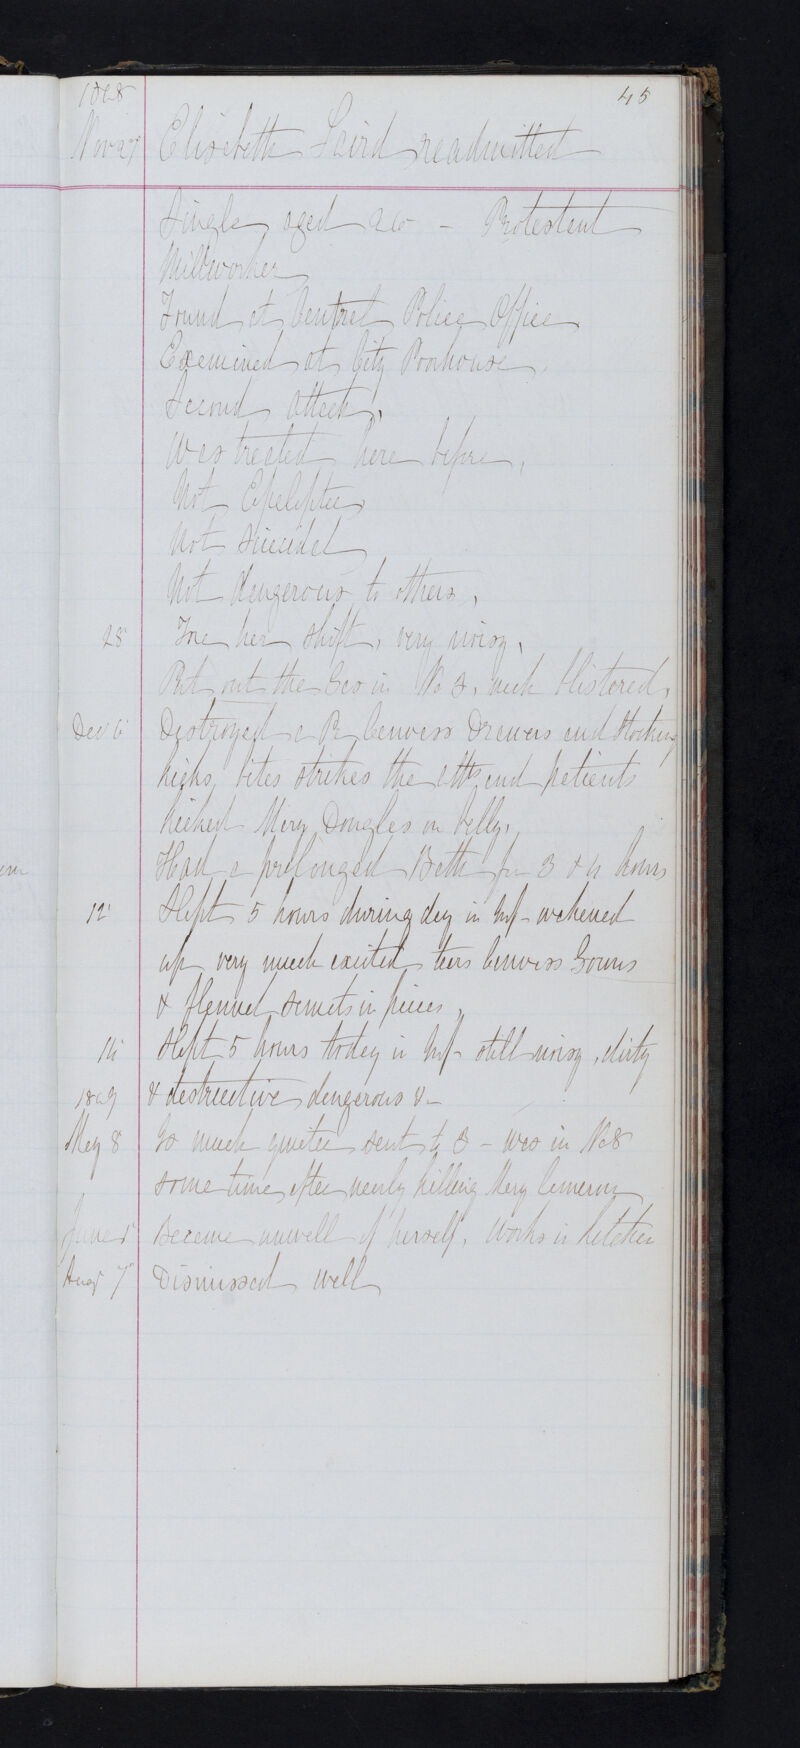 45
1868
Nov 27 Elizabeth Laird readmitted
Single aged 26 - Protestant
Millworker
Found at Central Police Office
Examined at City Poorhouse.
Second attack.
Was treated here before.
Not Epileptic.
Not suicidal
Not dangerous to others.
28 Tore her shift, very noisy.
Put out the Gas in No 3. neck blistered.
Dec 6 Destroyed a Pr Canvass Drawers and stockings
kicks, bites strikes the atts and patients
kicked Mary Douglas on belly.
Had a prolonged Bath for 3 & 4 hours
12 Slept 5 hours during day in Inf - wakened
up very much excited tears Canvass Gowns
& flannel semets in pieces.
14 Slept 5 hours today in Inf - still noisy, dirty
1869 & destructive dangerous &-
May 8 So much quieter sent to 3 - was in No 8
some time after nearly killing Mary Cameron
June 5 Became unwell of herself. Works in kitchen
Aug 7 Dismissed well